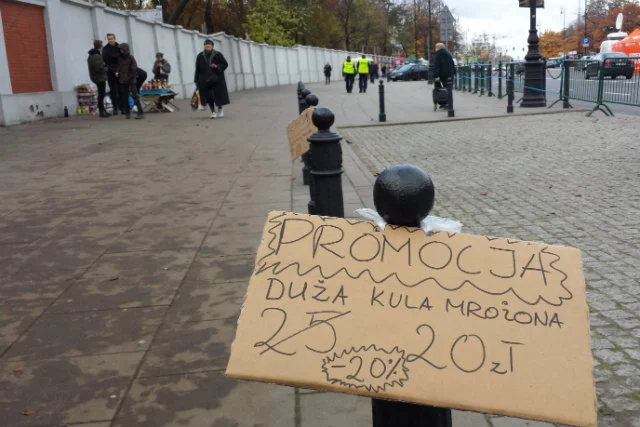 PROMOCJA
DUŻA KULA MROŻONA
25 20 zł
-20%